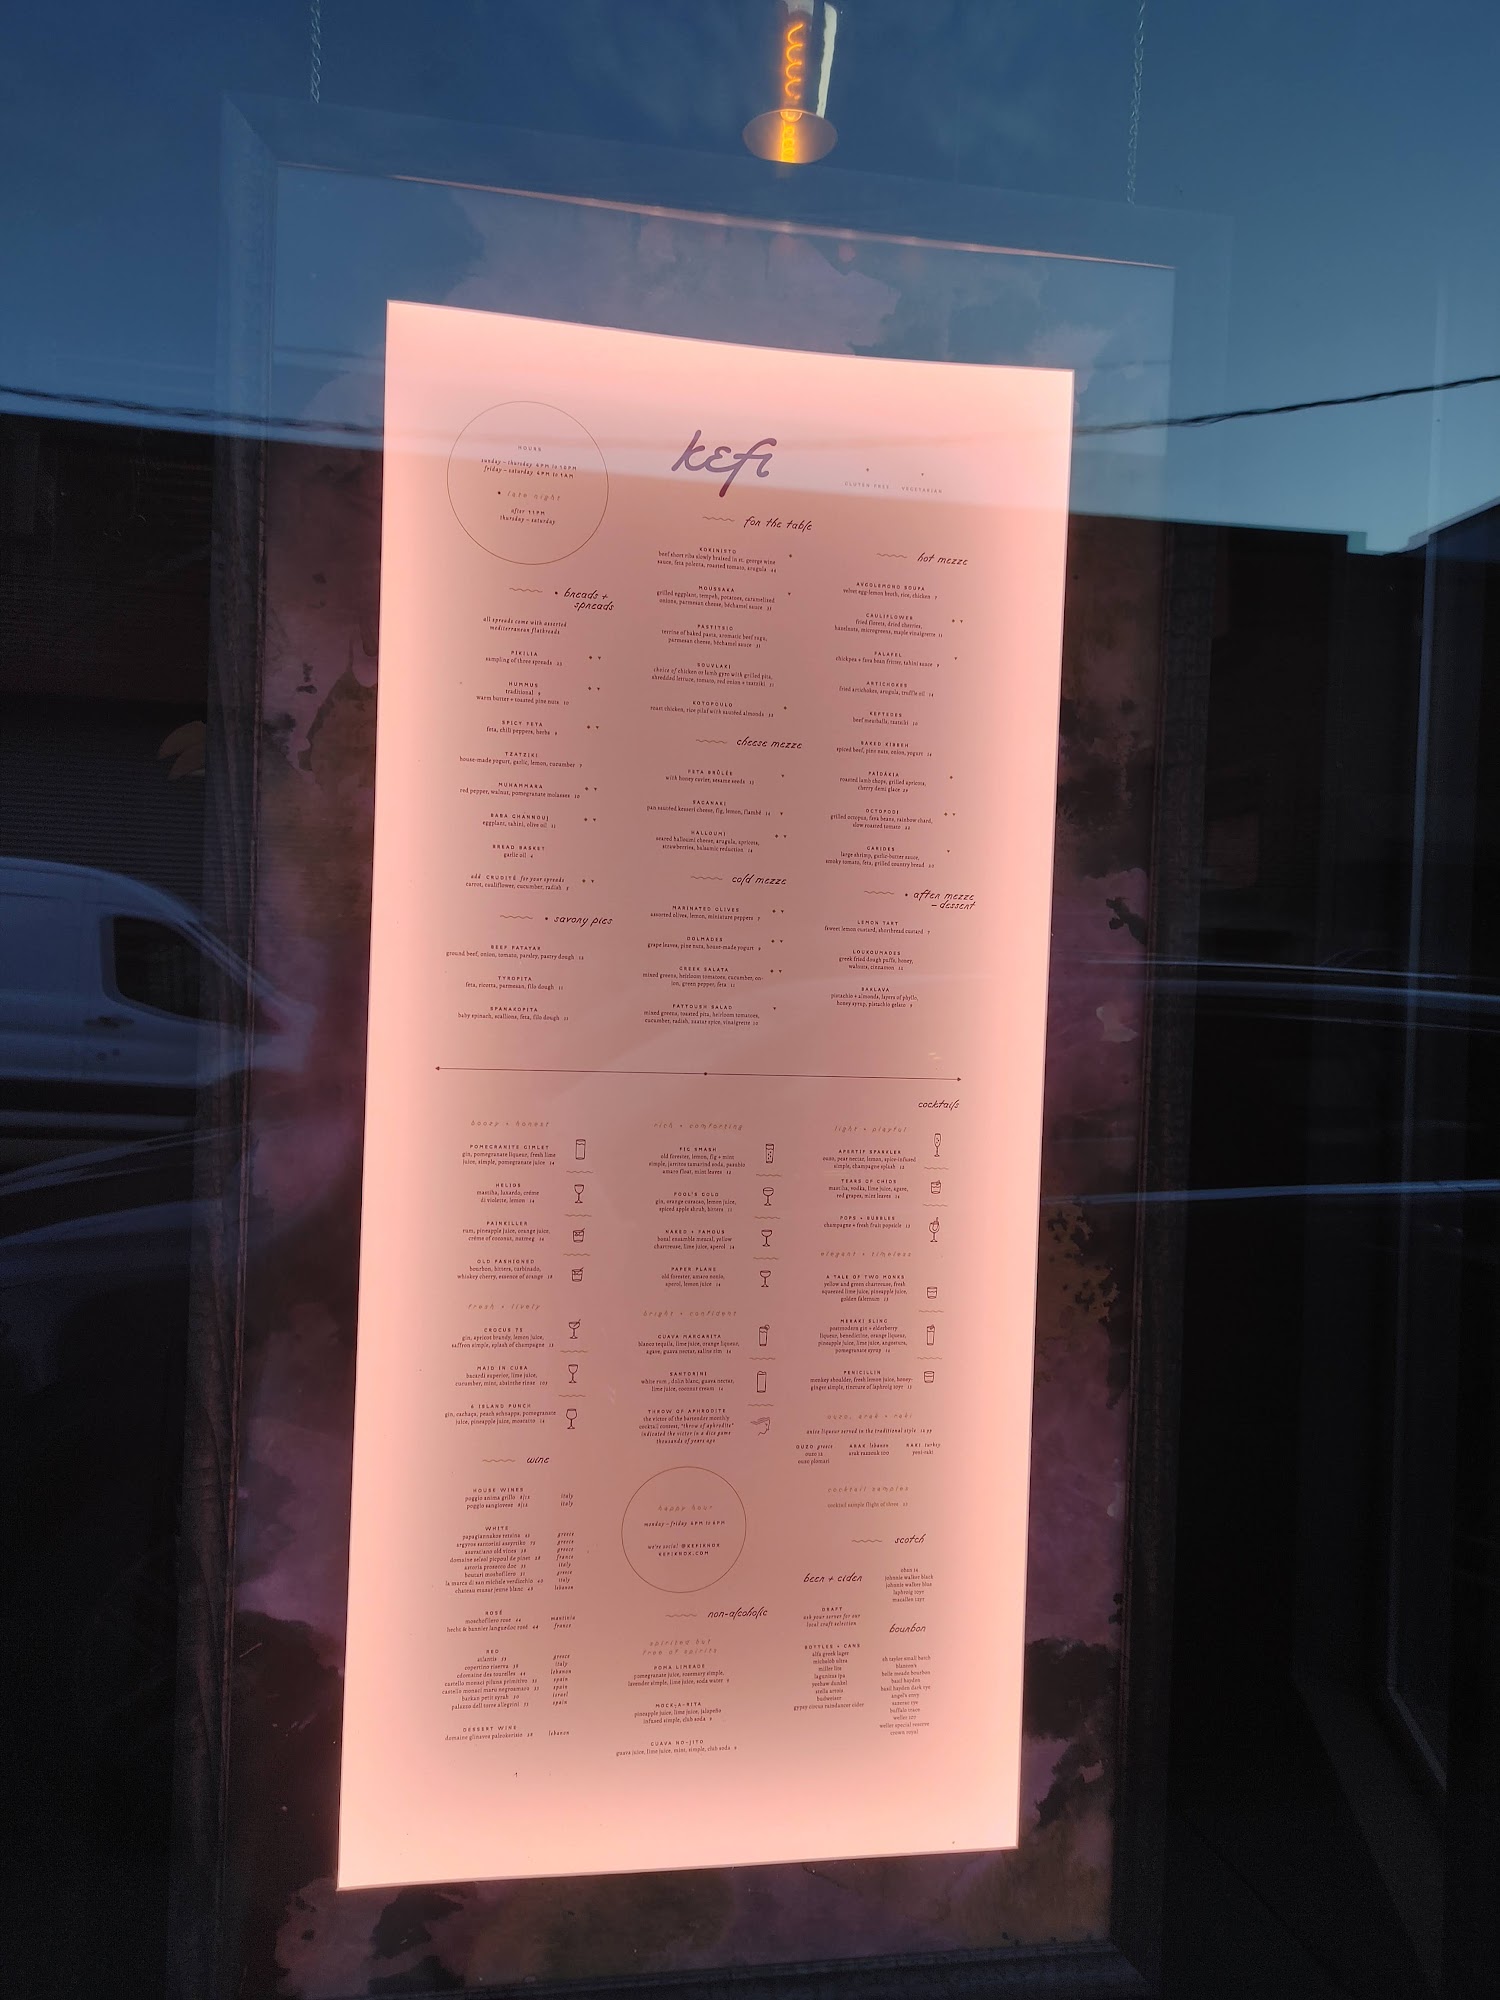 HOURS
sunday – thursday 4PM to 10PM
friday – saturday 4PM to 1AM
• late night
after 11PM
thursday – saturday
kefi
GLUTEN FREE VEGETARIAN
• breads +
spreads
all spreads come with assorted
mediterranean flatbreads
PIKILIA
sampling of three spreads
HUMMUS
traditional
warm butter + toasted pine nuts 10
SPICY FETA
feta, chili peppers, herbs
TZATZIKI
house-made yogurt, garlic, lemon, cucumber
MUHAMMARA
red pepper, walnut, pomegranate molasses 10
BABA GHANNOUJ
eggplant, tahini, olive oil 11
BREAD BASKET
garlic oil
add CRUDITÉ for your spreads
carrot, cauliflower, cucumber, radish
• savory pies
BEEF FATAYAR
ground beef, onion, tomato, parsley, pastry dough
TYROPITA
feta, ricotta, parmesan, filo dough 11
SPANAKOPITA
baby spinach, scallions, feta, filo dough 11
for the table
KOKINISTO
beef short ribs slowly braised in st. george wine
sauce, feta polenta, roasted tomato, arugula
MOUSSAKA
grilled eggplant, tempeh, potatoes, caramelized
onions, parmesan cheese, béchamel sauce
PASTITSIO
terrine of baked pasta, aromatic beef ragu,
parmesan cheese, béchamel sauce
SOUVLAKI
choice of chicken or lamb gyro with grilled pita,
shredded lettuce, tomato, red onion + tzatziki
KOTOPOULO
roast chicken, rice pilaf with sautéed almonds
cheese mezze
FETA BRÛLÉE
with honey caviar, sesame seeds
SAGANAKI
pan sautéed kesseri cheese, fig, lemon, flambé 14
HALLOUMI
seared halloumi cheese, arugula, apricots,
strawberries, balsamic reduction 14
cold mezze
MARINATED OLIVES
assorted olives, lemon, miniature peppers
DOLMADES
grape leaves, pine nuts, house-made yogurt
GREEK SALATA
mixed greens, heirloom tomatoes, cucumber, on-
ion, green pepper, feta
FATTOUSH SALAD
mixed greens, toasted pita, heirloom tomatoes,
cucumber, radish, sumac spice, vinaigrette 10
hot mezze
AVGOLEMONO SOUPA
velvet egg-lemon broth, rice, chicken
CAULIFLOWER
fried florets, dried cherries,
hazelnuts, microgreens, maple vinaigrette
FALAFEL
chickpea + fava bean fritter, tahini sauce
ARTICHOKES
fried artichokes, arugula, truffle oil 14
KEFTEDES
beef meatballs, tzatziki
BAKED KIBBEH
spiced beef, pine nuts, onion, yogurt
PAÏDÁKIA
roasted lamb chops, grilled apricots,
cherry demi glace
OCTOPODI
grilled octopus, fava beans, rainbow chard,
slow roasted tomato
GARIDES
large shrimp, garlic-butter sauce,
smoky tomato, feta, grilled country bread
• after mezze
– dessert
LEMON TART
sweet lemon custard, shortbread custard
LOUKOUMADES
greek fried dough puffs, honey,
walnuts, cinnamon
BAKLAVA
pistachio + almonds, layers of phyllo,
honey syrup, pistachio gelato
cocktails
boozy + honest
POMEGRANITE GIMLET
gin, pomegranate liqueur, fresh lime
juice, simple, pomegranate juice 14
HELIOS
mastiha, luxardo, créme
di violette, lemon 14
PAINKILLER
rum, pineapple juice, orange juice,
créme of coconut, nutmeg
OLD FASHIONED
bourbon, bitters, turbinado,
whiskey cherry, essence of orange
fresh + lively
CROCUS 75
gin, apricot brandy, lemon juice,
saffron simple, splash of champagne
MAID IN CUBA
bacardi superior, lime juice,
cucumber, mint, absinthe rinse
6 ISLAND PUNCH
gin, cachaça, peach schnapps, pomegranate
juice, pineapple juice, moscato
wine
HOUSE WINES
poggio anima grillo italy
poggio sangiovese italy
WHITE
papagiannakos retsina greece
argyros santorini assyrtiko greece
asava/ano old vines greece
domaine selosi picpoul de pinet france
astoria prosecco doc italy
boutari moshofilero greece
la marca di san michele verdicchio italy
chateau musar jeune blanc lebanon
ROSÉ
moschofilero rose mantinia
hecht & bannier languedoc rosé france
RED
atlantis greece
copertino riserva italy
cdoveaine des tourelles lebanon
castello monaci piluna primitivo spain
castello monaci maru negroamaro spain
barkan petit syrah israel
palazzo dell torre allegrini spain
DESSERT WINE
domaine glinavos paleokerisio lebanon
rich + comforting
FIG SMASH
old forester, lemon, fig + mint
simple, jarritos tamarind soda, pasubio
amaro float, mint leaves
FOOL'S GOLD
gin, orange curacao, lemon juice,
spiced apple shrub, bitters
NAKED + FAMOUS
bozal ensamble mezcal, yellow
chartreuse, lime juice, aperol 14
PAPER PLANE
old forester, amaro nonio,
aperol, lemon juice 14
bright + confident
GUAVA MARGARITA
blanco tequila, lime juice, orange liqueur,
agave, guava nectar, saline rim
SANTORINI
white rum, dolin blanc, guava nectar,
lime juice, coconut cream
THROW OF APHRODITE
the victor of the bartender monthly
cocktail contest, "throw of aphrodite"
indicated the victor in a dice game
thousands of years ago
happy hour
monday – friday 4PM to 6PM
we're social @KEFIKNOX
KEFIKNOX.COM
non-alcoholic
spirited but
free of spirits
POMA LIMEADE
pomegranate juice, rosemary simple,
lavender simple, lime juice, soda water
MOCK-A-RITA
pineapple juice, lime juice, jalapeño
infused simple, club soda
GUAVA NO-JITO
guava juice, lime juice, mint, simple, club soda
light + playful
APERITIF SPARKLER
ouzo, pear nectar, lemon, spice-infused
simple, champagne splash
TEARS OF CHIOS
mastiha, vodka, lime juice, agave,
red grapes, mint leaves
POPS + BUBBLES
champagne + fresh fruit popsicle
elegant + timeless
A TALE OF TWO MONKS
yellow and green chartreuse, fresh
squeezed lime juice, pineapple juice,
golden falernum
MERAKI SLING
postmodern gin + elderberry
liqueur, benedictine, orange liqueur,
pineapple juice, lime juice, angostura,
pomegranate syrup
PENICILLIN
monkey shoulder, fresh lemon juice, honey-
ginger simple, tincture of laphroig 10yr
ouzo, arak + raki
anise liqueur served in the traditional style
OUZO greece ARAK lebanon RAKI turkey
ouzo 12 arak razzouk 100 yeni-raki
ouzo plomari
cocktail samples
cocktail sample flight of three
scotch
oban 14
johnnie walker black
johnnie walker blue
laphroig 10yr
macallan 12yr
beer + cider
DRAFT
ask your server for our
local craft selection
BOTTLES + CANS
alfa greek lager
michelob ultra
miller lite
lagunitas ipa
yeehaw dunkel
stella artois
budweiser
gypsy circus raindancer cider
bourbon
eh taylor small batch
blanton's
belle meade bourbon
basil hayden
basil hayden dark rye
angel's envy
sazerac rye
buffalo trace
weller 107
weller special reserve
crown royal